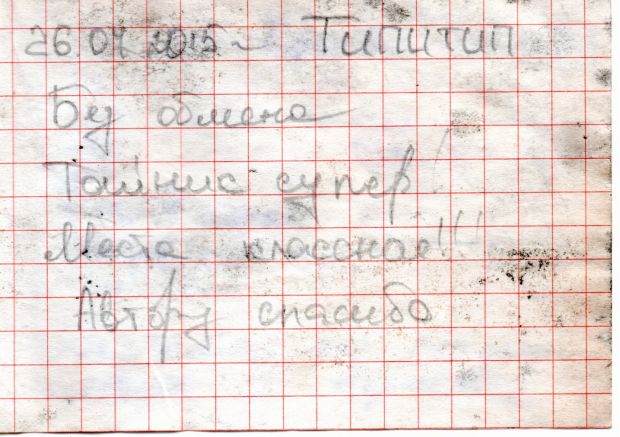 26.07.2015г Типитип
Бз обмена
Тайник супер!
Места классная!!!
Автору спасибо